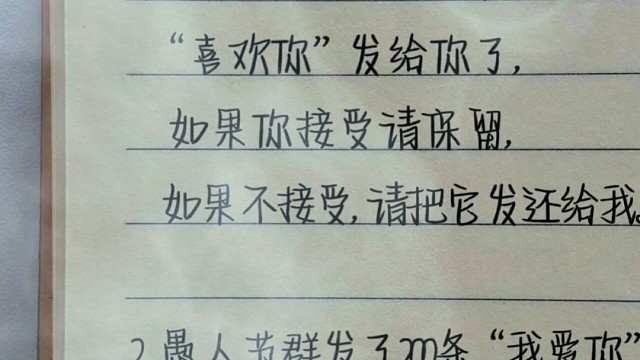 “喜欢你”发给你了,
如果你接受请保留,
如果不接受,请把它发还给我。
2.愚人节群发了200条“我爱你”